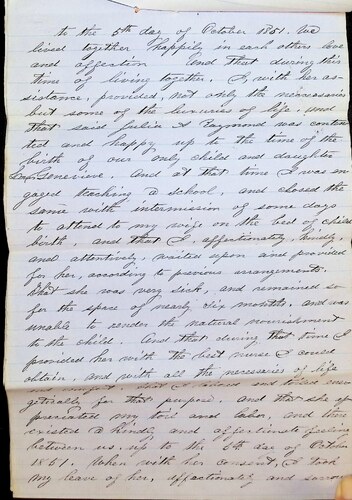 to the 5th day of October 1851. We
lived together happily in each others love
and affection And that during this
time of living together. I, with her as-
sistance, provided, not only the necessaries
but some of the luxuries of life and
that said A Raymond was conten
ted and happy up to the time of the
birth of our only child and daughter
Genevieve. And at that time I was en-
gaged teaching a school, and closed the
same with intermission of some days
to attend to my wife on the bed of child
birth, and that I, affectionately, kindly,
and attentively, waited upon and provided
for her, according to previous arrangements.
That she was very sick, and remained so
for the space of nearly six months, and was
unable to render the natural nourishment
to the child. And that during that time I
provided her with the best nurse I could
obtain, and with all the necessaries of life
that I and toiled ener
getically for that purpose, and that she ap
preciated my toil and labor, and there
existed a kindly and affectionate feeling
between us, up to the 6th day of October
1851. When with her consent, I took
my leave of her, affectionately and